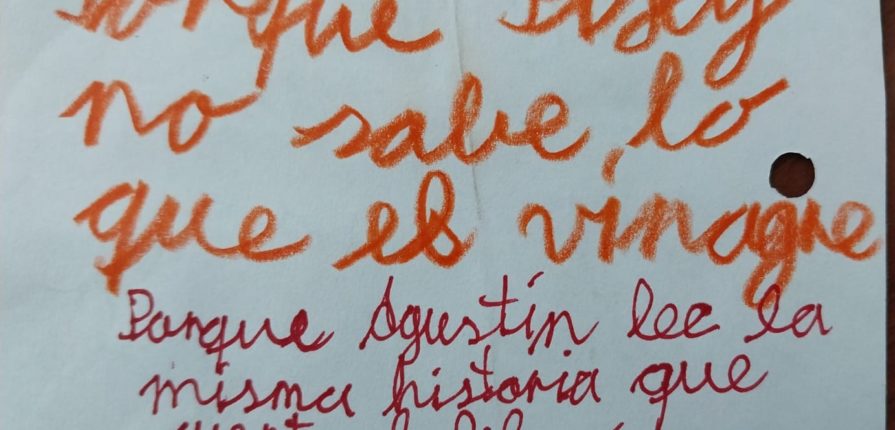 Porque
no sabe lo
que es vinagre
Porque Agustín lee la
misma historia que